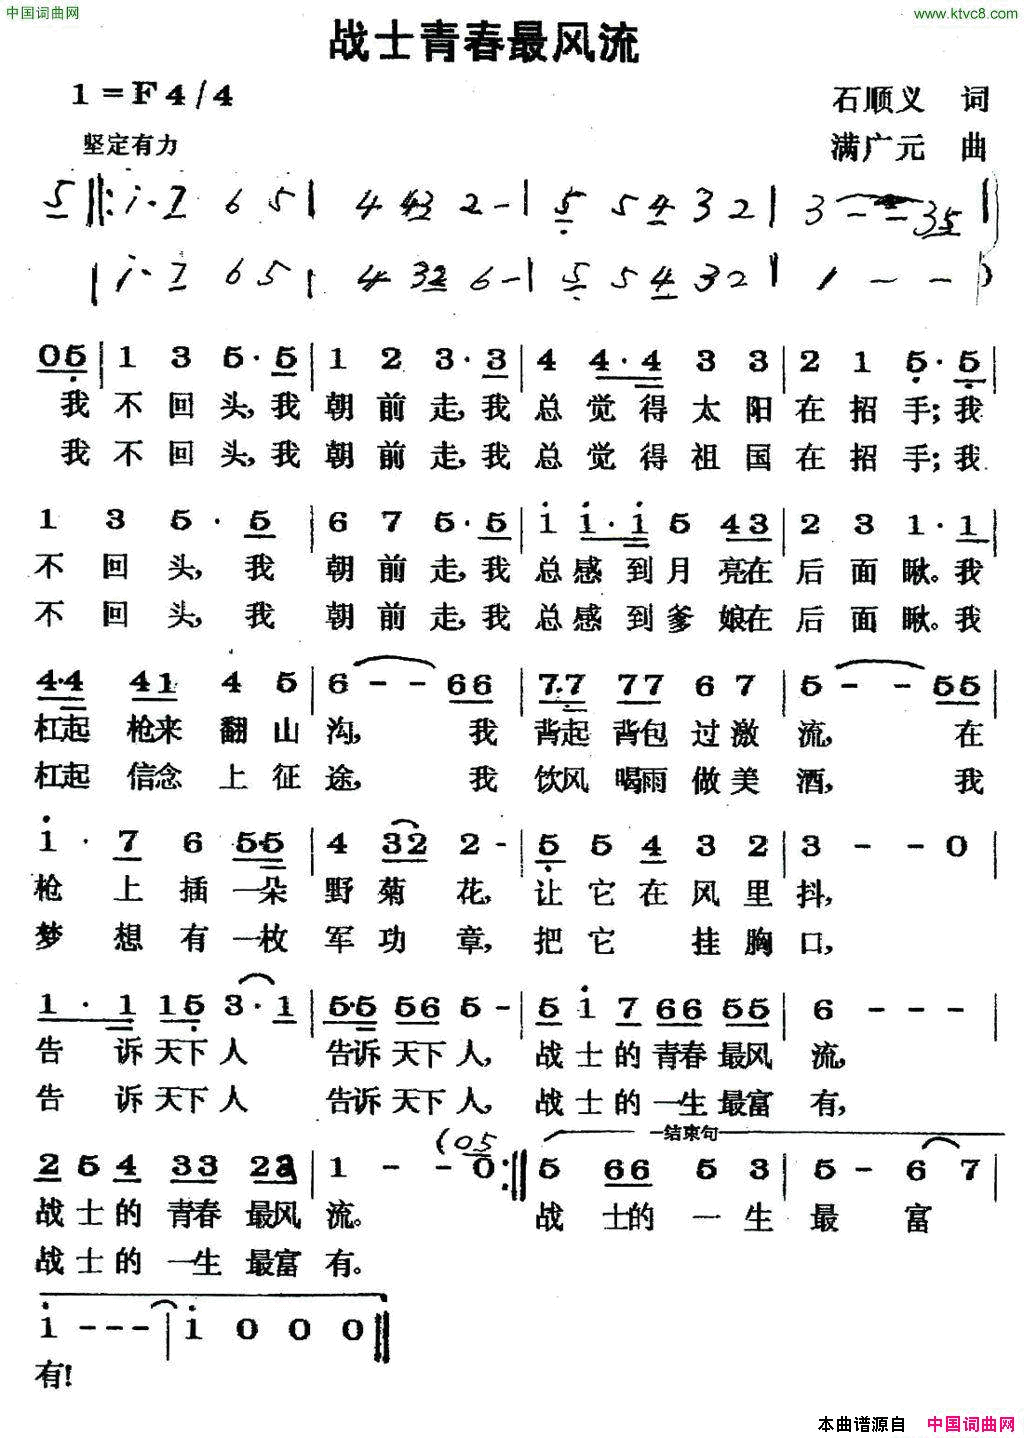 中国词曲网
www.ktvc8.com
战士青春最风流
1=F 4/4
石顺义 词
坚定有力
满广元 曲
5 ‖: i· 7 6 5 | 4 43 2 - | 5 5 4 3 2 | 3 - - 35 |
| i· 7 6 5 | 4 32 6 - | 5 5 4 3 2 | 1 - - )
05 | 1 3 5· 5 | 1 2 3· 3 | 4 4·4 3 3 | 2 1 5· 5 |
我 不 回 头, 我 朝 前 走, 我 总 觉 得 太 阳 在 招 手; 我
我 不 回 头, 我 朝 前 走, 我 总 觉 得 祖 国 在 招 手; 我
1 3 5· 5 | 6 7 5· 5 | i i·i 5 43 | 2 3 1· 1 |
不 回 头, 我 朝 前 走, 我 总 感 到 月 亮在 后 面 瞅。我
不 回 头, 我 朝 前 走, 我 总 感 到 爹 娘在 后 面 瞅。我
4·4 41 4 5 | 6 - - 66 | 7·7 77 6 7 | 5 - - 55 |
杠起 枪来 翻 山 沟, 我 背起 背包 过 激 流, 在
杠起 信念 上 征 途, 我 饮风 喝雨 做 美 酒, 我
i · 7 6 5·5 | 4 32 2 - | 5 5 4 3 2 | 3 - - 0 |
枪 上 插 一朵 野 菊 花, 让 它 在 风 里 抖,
梦 想 有 一枚 军 功 章, 把 它 挂 胸 口,
1 · 1 15 3· 1 | 5·5 56 5 - | 5 i 7 66 55 | 6 - - - |
告 诉 天下 人 告诉 天下 人, 战 士 的 青春 最风 流,
告 诉 天下 人 告诉 天下 人, 战 士 的 一生 最富 有,
(05 结束句
2 5 4 33 22 | 1 - - 0 :‖ 5 66 5 3 | 5 - 6 7 |
战 士 的 青春 最风 流。 战 士的 一 生 最 富
战 士 的 一生 最富 有。
i - - - | i 0 0 0 ‖
有!
本曲谱源自 中国词曲网